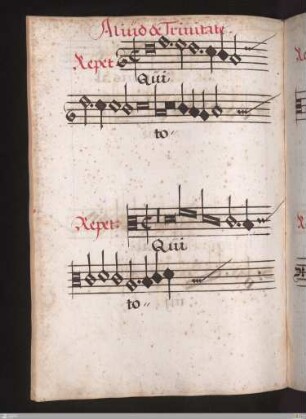 Aliud de Trinitate.
Repet
Qui
to-
Repet:
Qui
to-